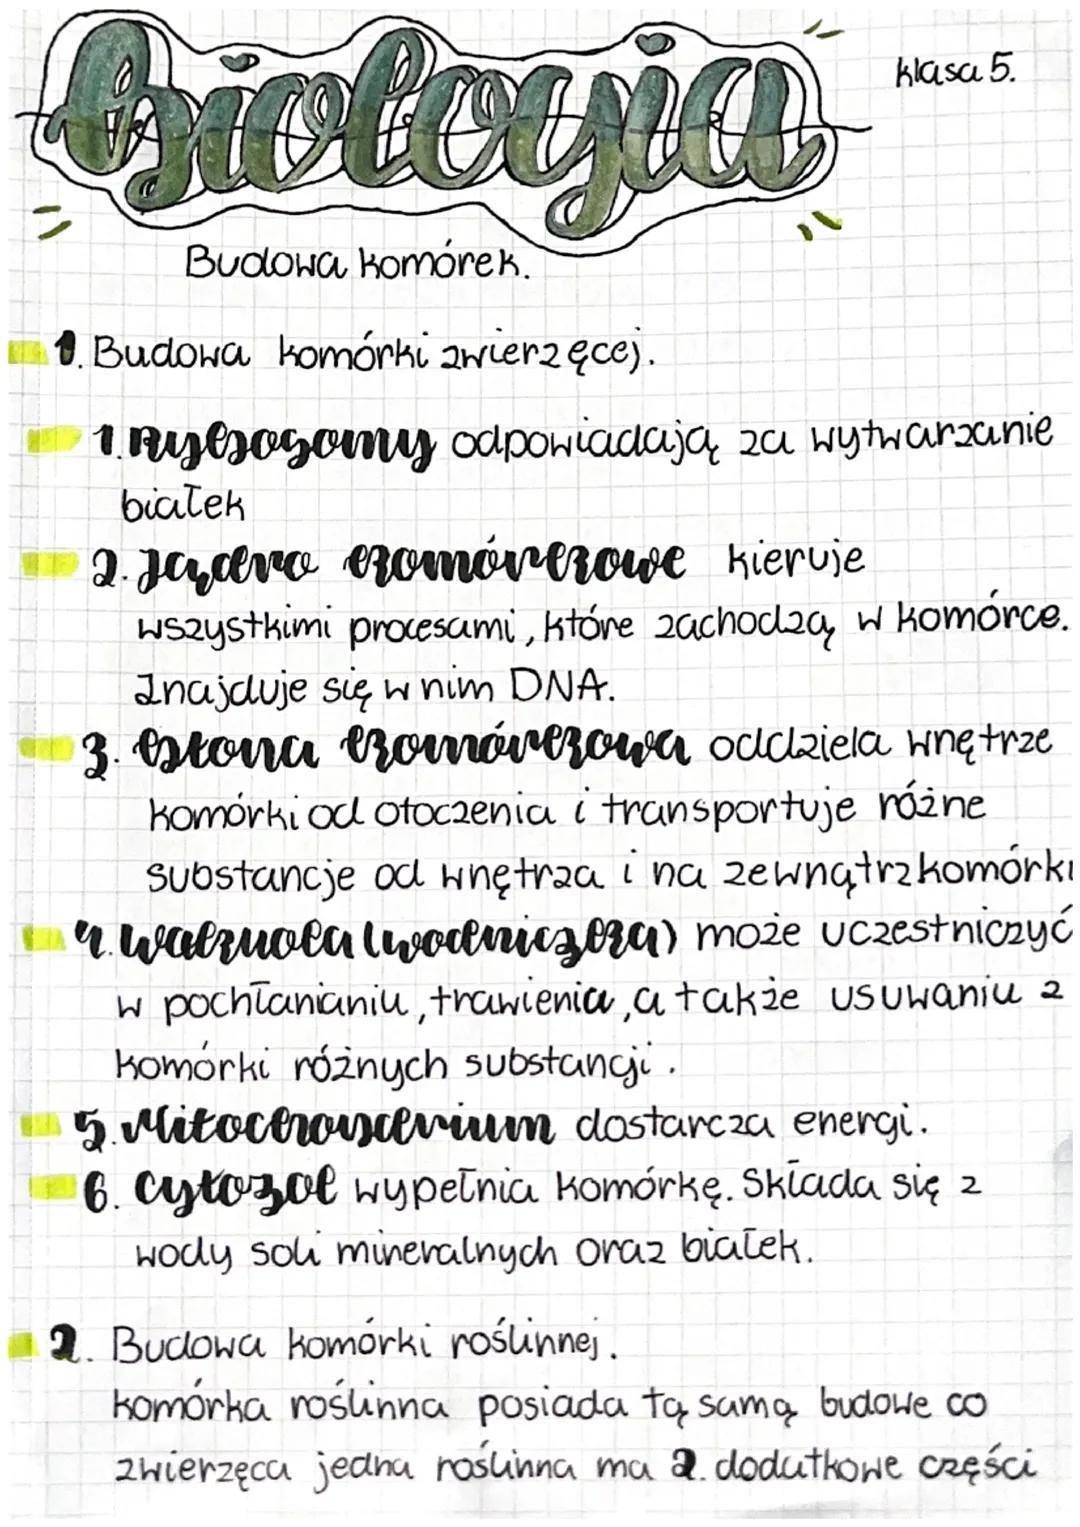 Biologia
klasa 5.
Budowa komórek.
1. Budowa komórki zwierzęcej.
1. Rybosomy odpowiadają za wytwarzanie
białek
2. Jądro komórkowe kieruje
wszystkimi procesami, które zachodzą w komórce.
Znajduje się w nim DNA.
3. Błona komórkowa oddziela wnętrze
komórki od otoczenia i transportuje różne
substancje od wnętrza i na zewnątrz komórki
4. Wakuola (wodniczka) może uczestniczyć
w pochłanianiu, trawienia, a także usuwaniu z
komórki różnych substancji.
5. Mitochondrium dostarcza energi.
6. Cytozol wypełnia komórkę. Składa się z
wody soli mineralnych oraz białek.
2. Budowa komórki roślinnej.
komórka roślinna posiada tą samą budowe co
zwierzęca jedna roślinna ma 2. dodatkowe części